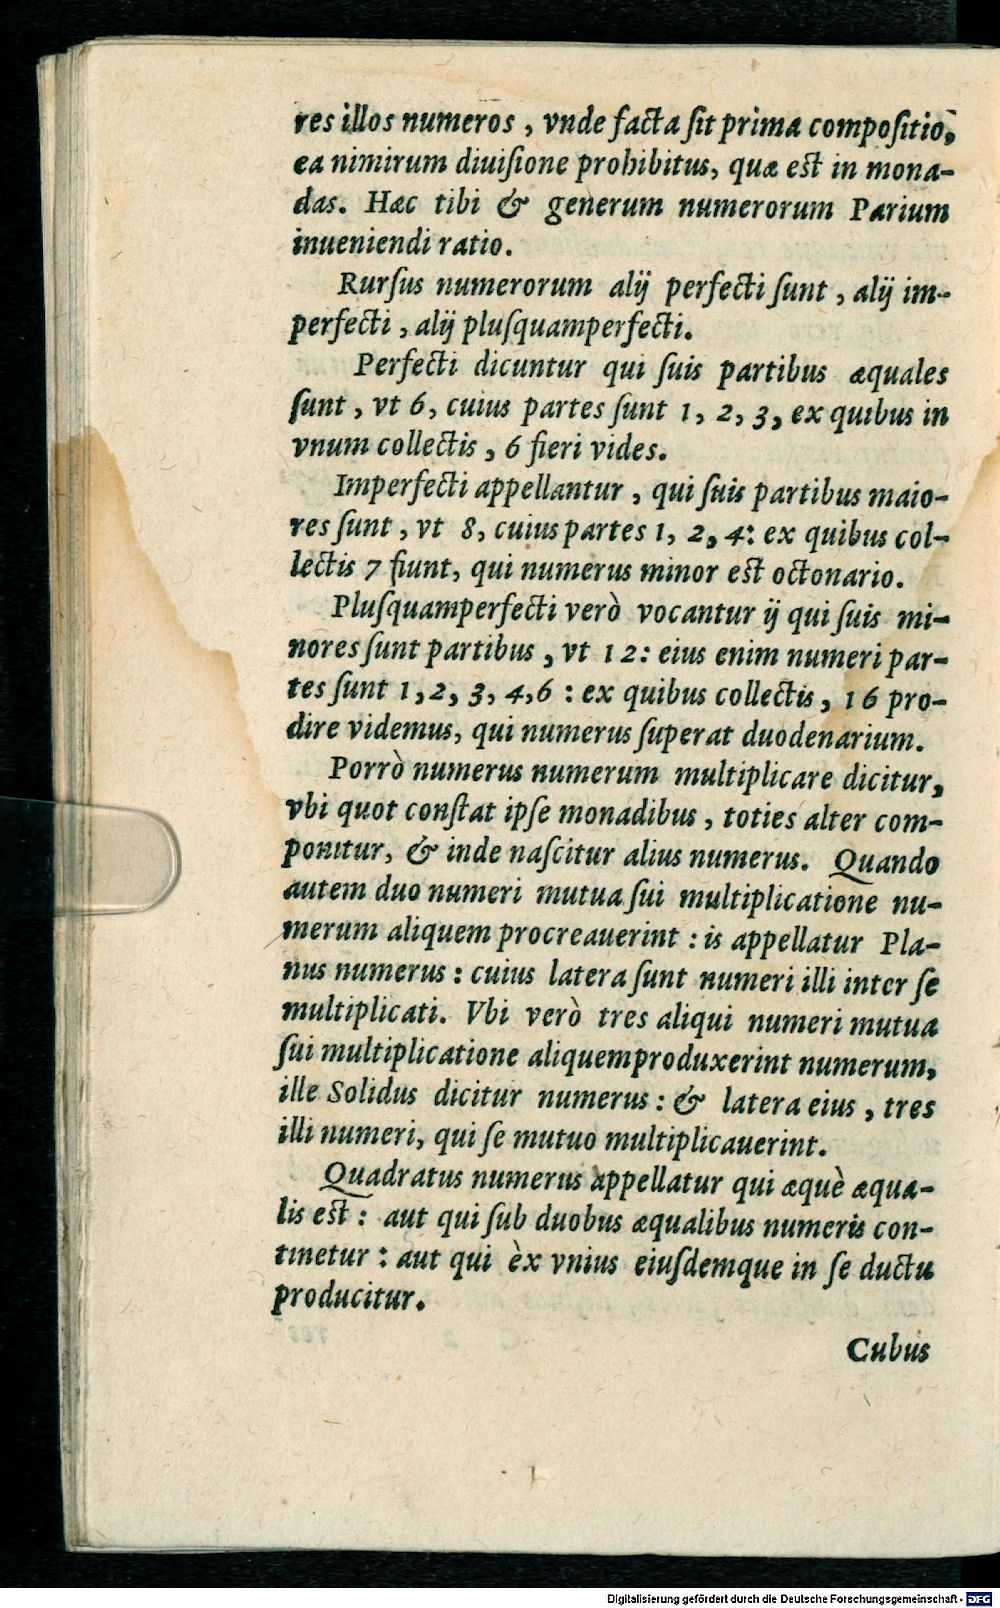 res illos numeros, vnde facta ſit prima compoſitio,
ea nimirum diuiſione prohibitus, quæ est in mona-
das. Hæc tibi & generum numerorum Parium
inueniendi ratio.
Rurſus numerorum alij perfecti ſunt, alij im-
perfecti, alij pluſquamperfecti.
Perfecti dicuntur qui ſuis partibus æquales
ſunt, vt 6, cuius partes ſunt 1, 2, 3, ex quibus in
vnum collectis, 6 fieri vides.
Imperfecti appellantur, qui ſuis partibus maio-
res ſunt, vt 8, cuius partes 1, 2, 4: ex quibus col-
lectis 7 fiunt, qui numerus minor est octonario.
Pluſquamperfecti verò vocantur ij qui ſuis mi-
nores ſunt partibus, vt 12: eius enim numeri par-
tes ſunt 1, 2, 3, 4, 6: ex quibus collectis, 16 pro-
dire videmus, qui numerus ſuperat duodenarium.
Porrò numerus numerum multiplicare dicitur,
vbi quot conſtat ipſe monadibus, toties alter com-
ponitur, & inde naſcitur alius numerus. Quando
autem duo numeri mutua ſui multiplicatione nu-
merum aliquem procreauerint: is appellatur Pla-
nus numerus: cuius latera ſunt numeri illi inter ſe
multiplicati. Vbi verò tres aliqui numeri mutua
ſui multiplicatione aliquem produxerint numerum,
ille Solidus dicitur numerus: & latera eius, tres
illi numeri, qui ſe mutuo multiplicauerint.
Quadratus numerus appellatur qui æquè æqua-
lis est: aut qui ſub duobus æqualibus numeris con-
tinetur: aut qui èx vnius eiuſdemque in ſe ductu
producitur.
Cubus
Digitalisierung gefördert durch die Deutsche Forschungsgemeinschaft - DFG